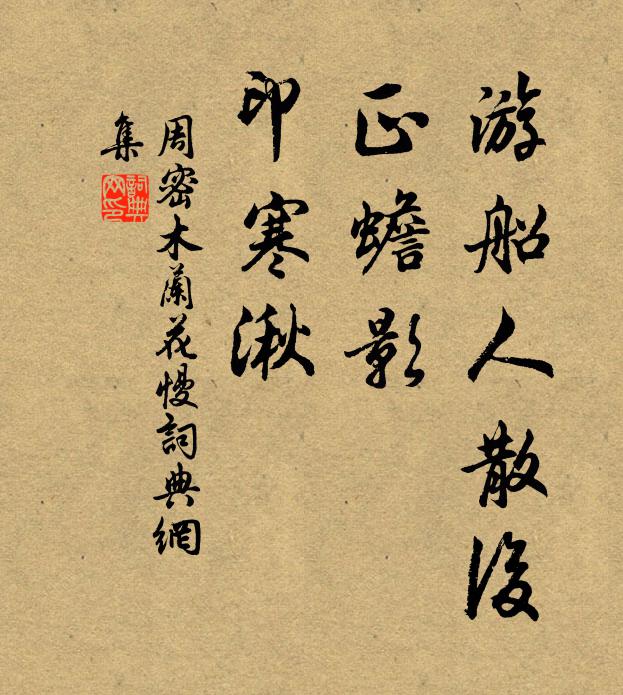 游船人散後
正蟾影
印寒湫
周密木蘭花慢詞典網
集
詞典网印